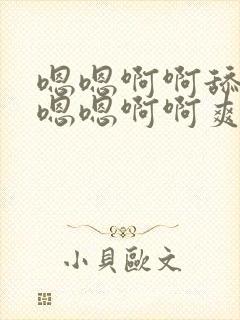 嗯嗯啊啊舔
嗯嗯啊啊爽
小貝歐文